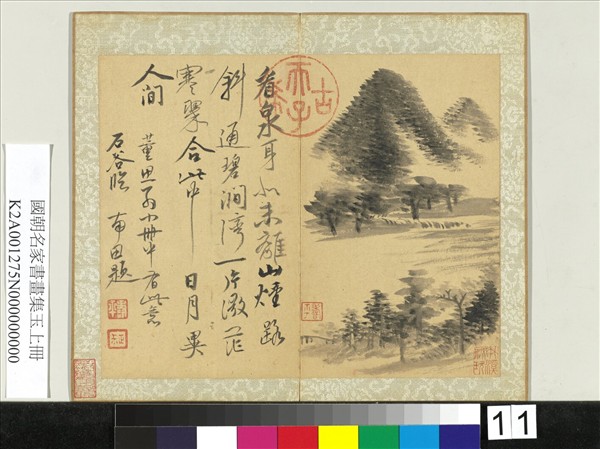 看泉耳未離山煙路
斜通碧澗灣一片微茫
寒翠合此中日月異
人間
董思翁小冊中有此意
石谷臨 南田題
古希天子
國朝名家書畫集玉上冊
K2A001275N000000000
11